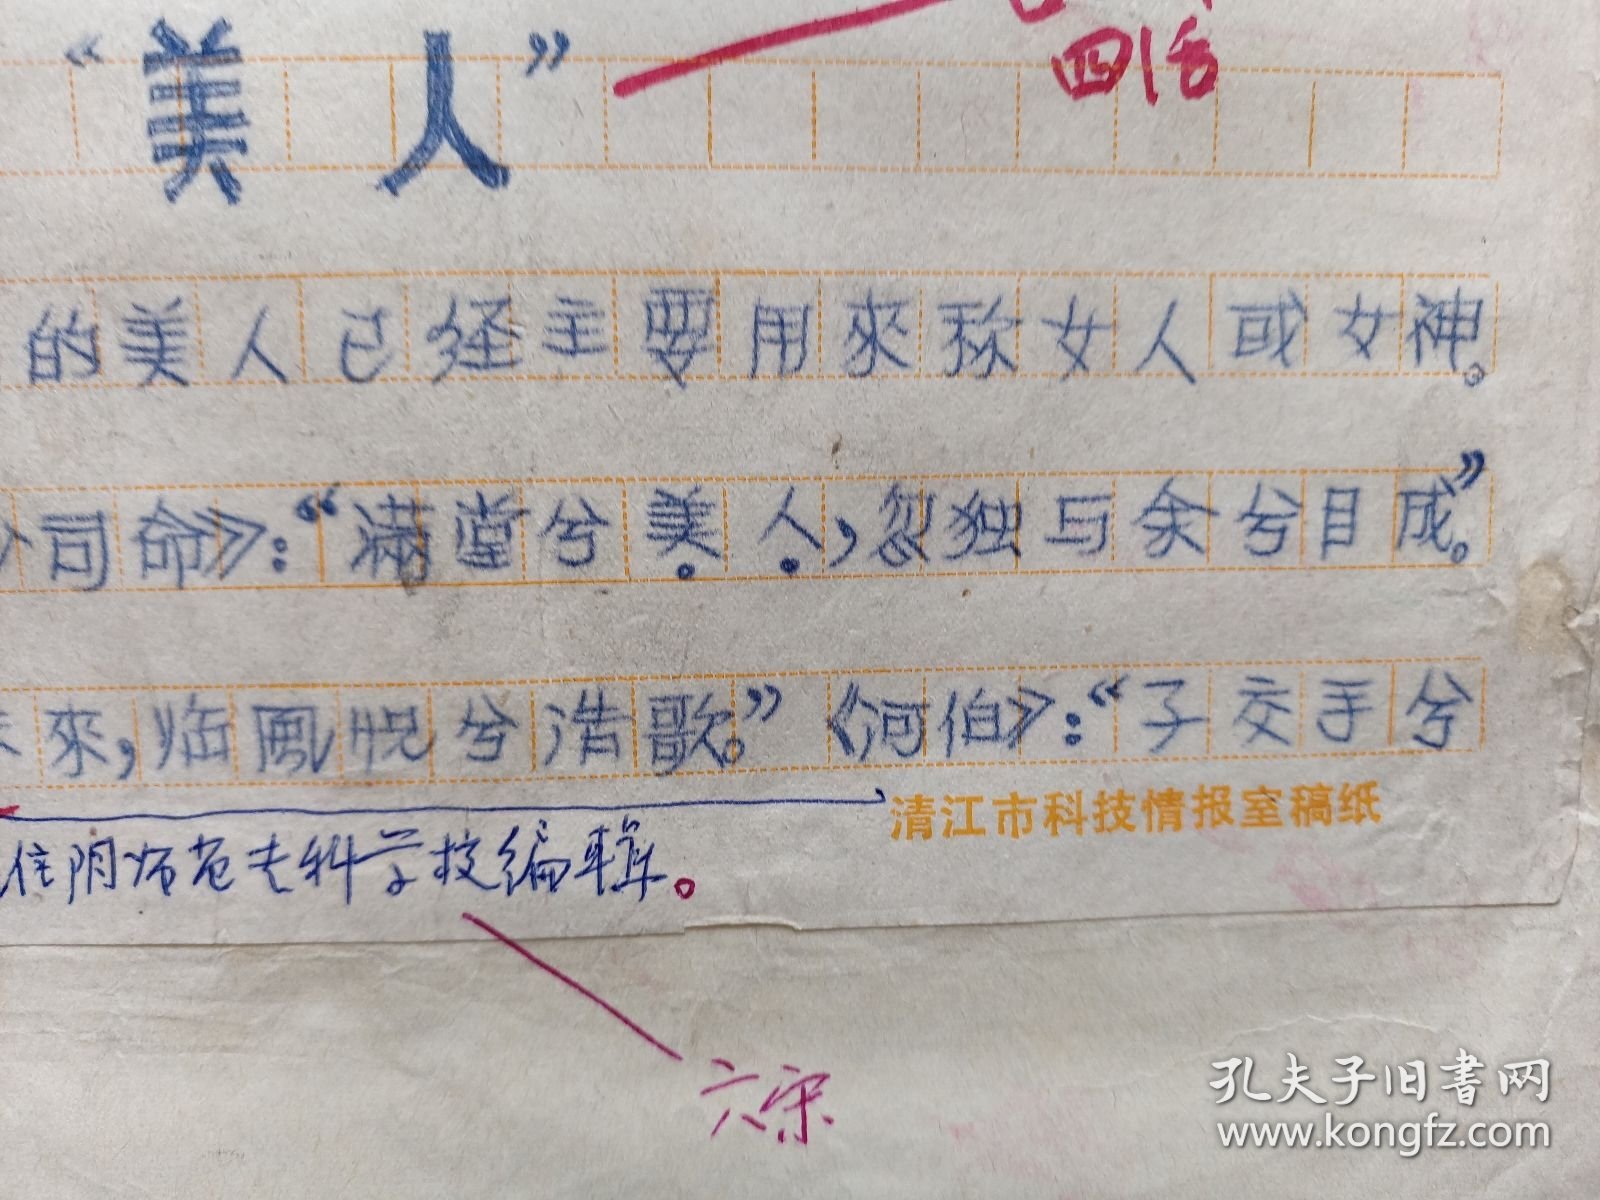 四活
“美人”
的美人已经主要用來称女人或女神。
司命》：“滿堂兮美人，忽独与余兮目成。”
來，临風怳兮浩歌。”《河伯》：“子交手兮
清江市科技情报室稿纸
阴师范专科学校编輯。
六宋
孔夫子旧書网
www.kongfz.com